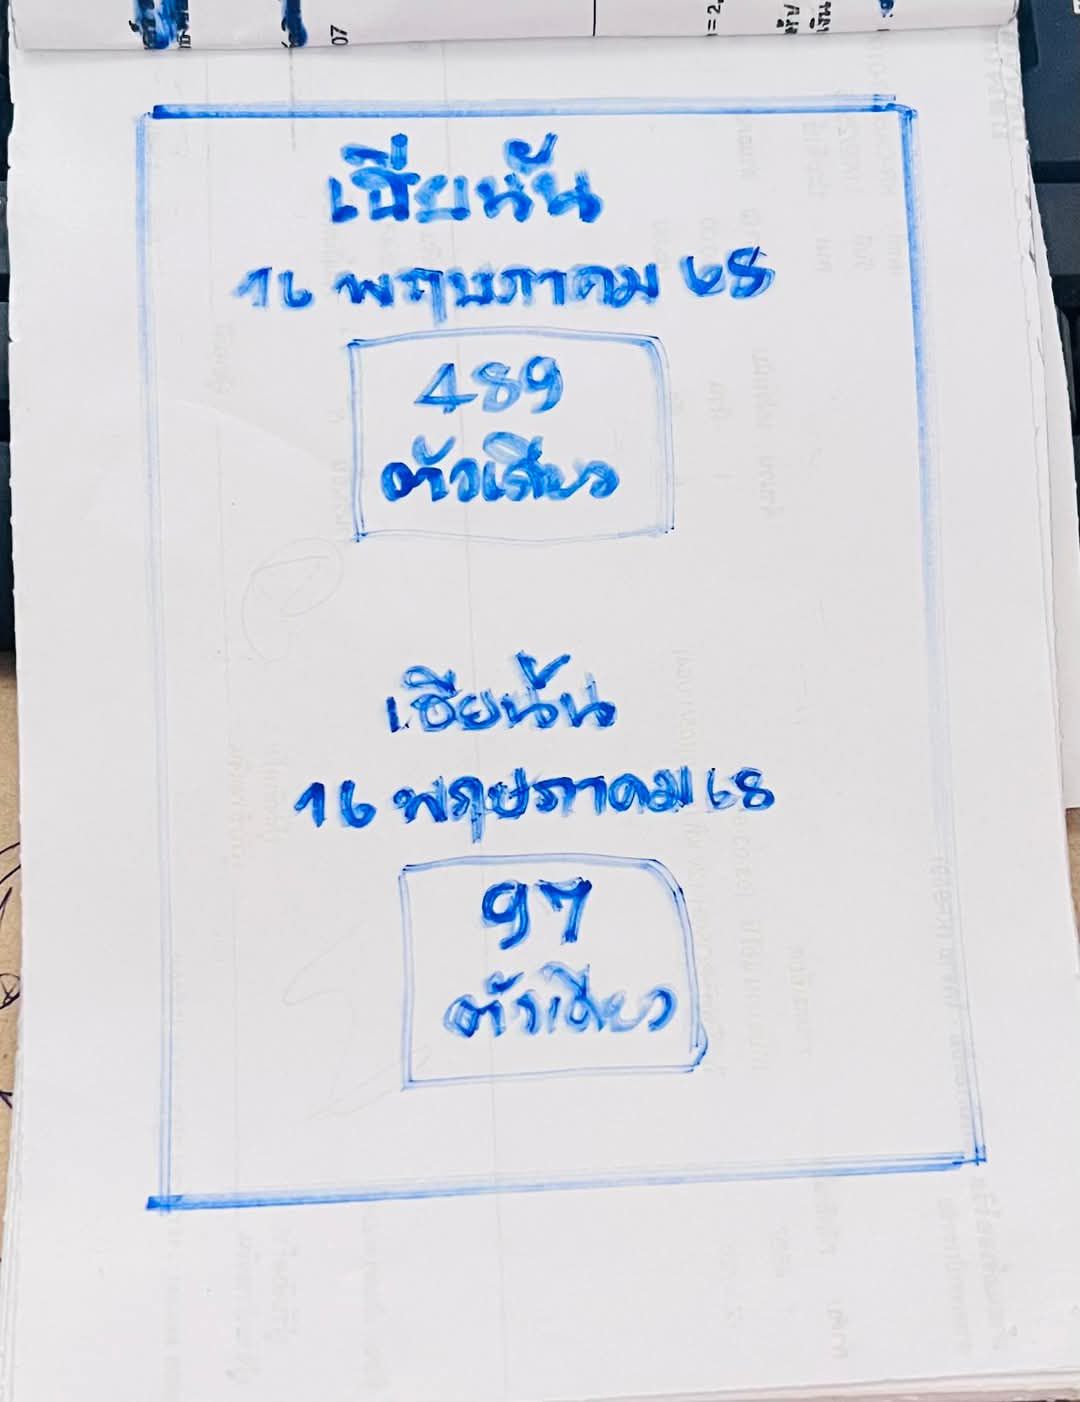 07
= 2,
เฮียนัน
16 พฤษภาคม 68
489
ตัวเดียว
เฮียนัน
16 พฤษภาคม 68
97
ตัวเดียว